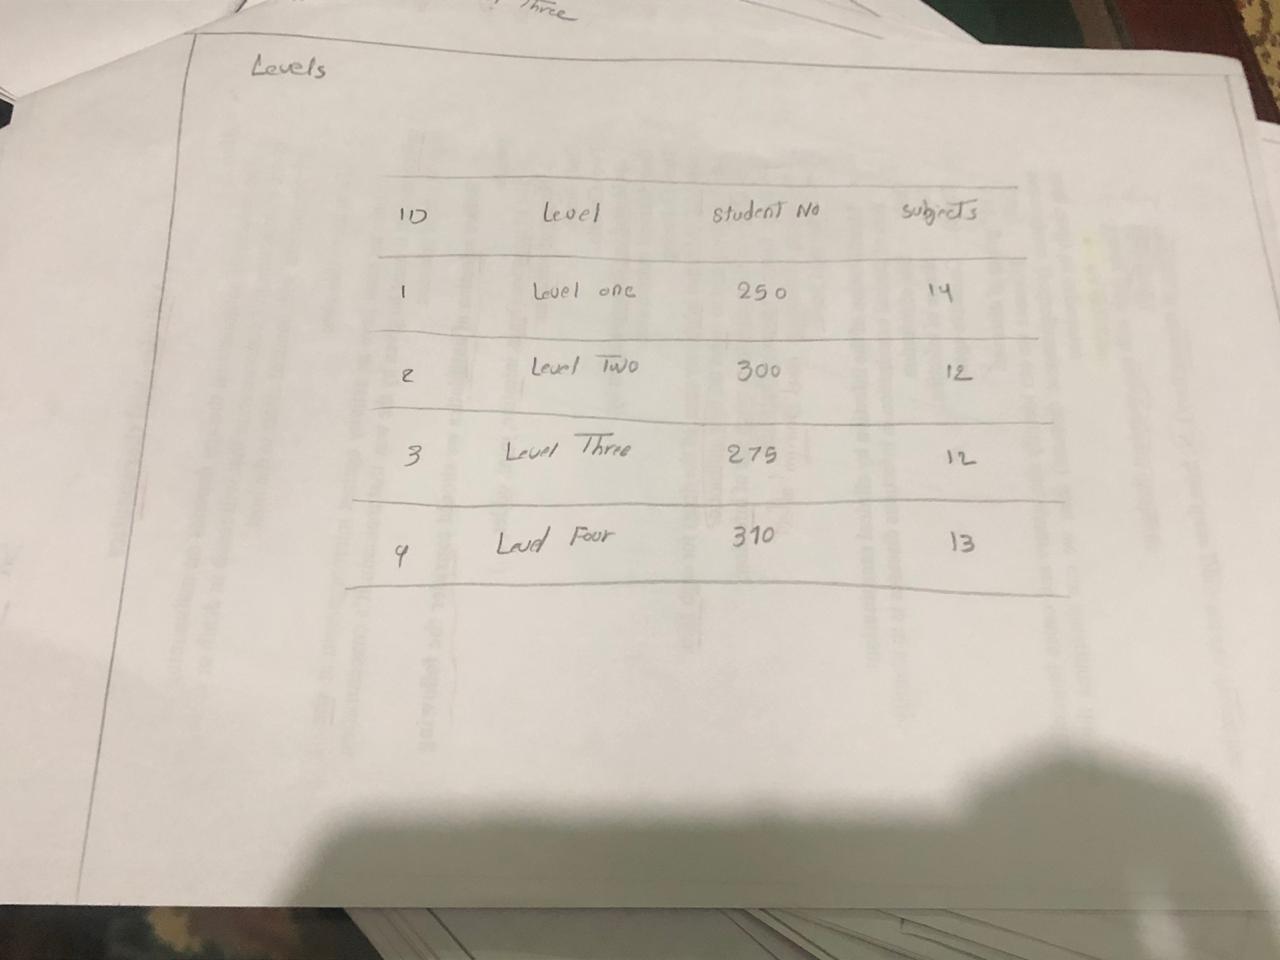 Three
Levels
ID Level Student No Subjects
1 Level one 250 14
2 Level Two 300 12
3 Level Three 275 12
4 Level Four 310 13